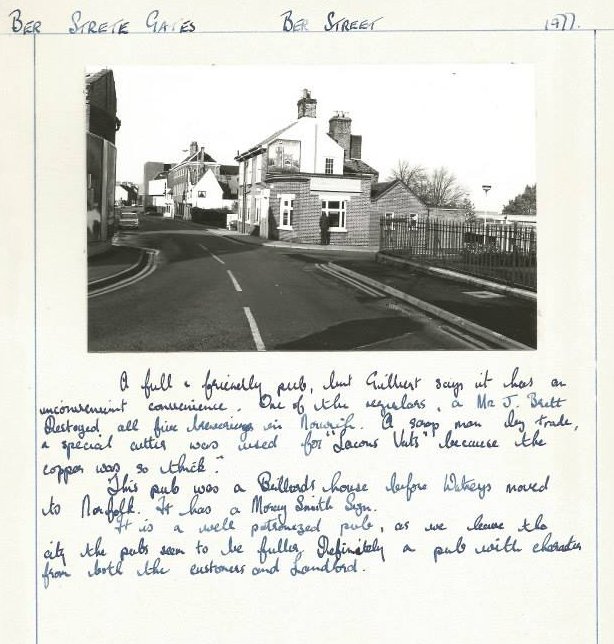 BER STRETE GATES BER STREET 1977.
A full & friendly pub, but Gilbert says it has an
inconvenient convenience. One of the regulars, a Mr J. Brett
Destroyed all five breweries in Norwich. A scrap man by trade,
a special cutter was used for "Lacons Vats" because the
copper was so thick."
This pub was a Bullards house before Watneys moved
to Norfolk. It has a Moray Smith Sign.
It is a well patronized pub, as we leave the
city the pubs seem to be fuller. Definitely a pub with character
from both the customers and Landlord.